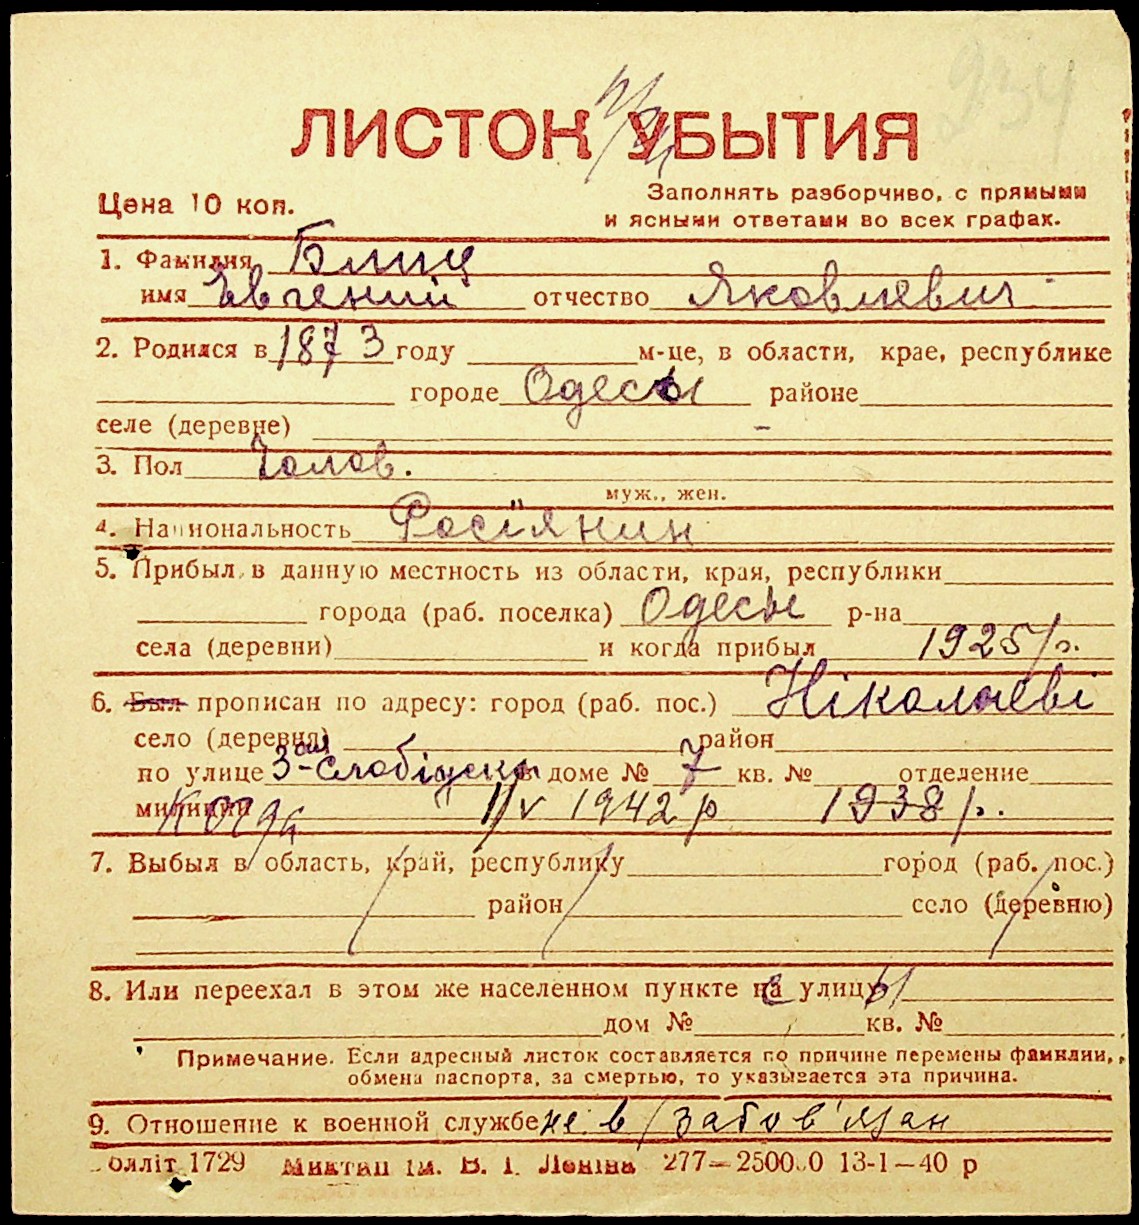 234
ЛИСТОК УБЫТИЯ
Цена 10 коп.
Заполнять разборчиво, с прямыми
и ясными ответами во всех графах.
1. Фамилия Блиц
имя Євгений отчество Яковлевич
2. Родился в 1873 году м-це, в области, крае, республике
городе Одесы районе
селе (деревне) –
3. Пол Чолов.
муж., жен.
4. Национальность Росіянин
5. Прибыл в данную местность из области, края, республики
города (раб. поселка) Одесы р-на
села (деревни) и когда прибыл 1925 р.
6. Был прописан по адресу: город (раб. пос.) Ніколаеві
село (деревня) район
по улице 3-ая Слобідска в доме № 7 кв. № отделение
милиции когда 1/V 1942 р 1938 р.
7. Выбыл в область, край, республику город (раб. пос.)
район село (деревню)
8. Или переехал в этом же населенном пункте на улицу
дом № кв. №
Примечание. Если адресный листок составляется по причине перемены фамилии,
обмена паспорта, за смертью, то указывается эта причина.
9. Отношение к военной службе не в/забов'язан
1729 ім. В. І. Леніна 277—25000 13-1—40 р